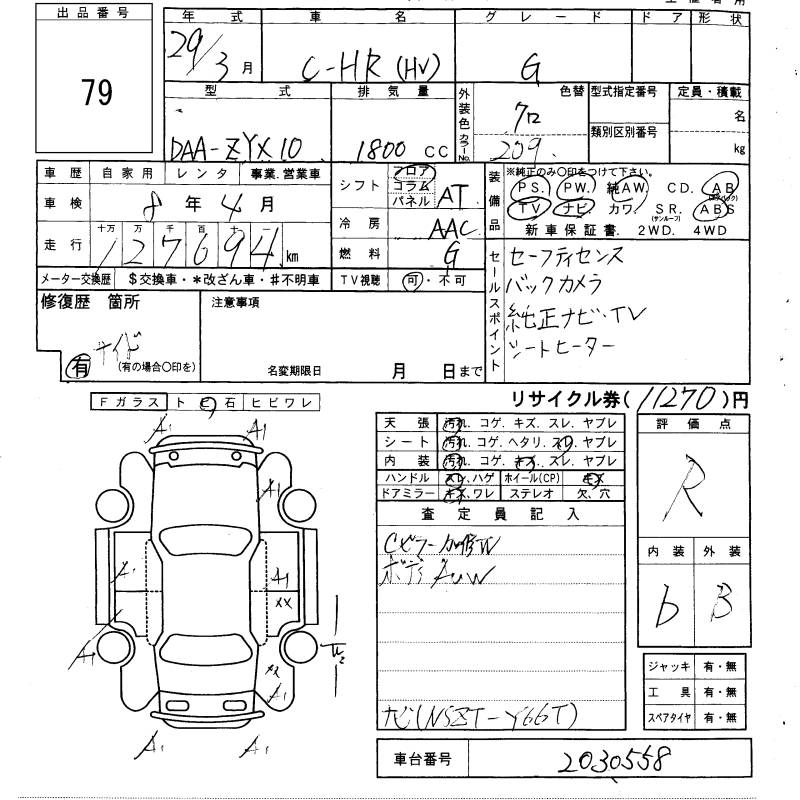 出品番号
79
年式 車名 グレード ドア 形状
29/3月 C-HR (HV) G
型式 排気量 外装色 色替 型式指定番号 定員・積載
DAA-ZYX10 1800 CC クロ 名
カラーNo. 209 類別区別番号 kg
車歴 自家用 レンタ 事業.営業車
車検 8年4月
走行 十万 万 千 百 十 一
127694 km
メーター交換歴 $交換車・*改ざん車・#不明車
シフト フロア コラム パネル AT
冷房 AAC
燃料 G
TV視聴 可・不可
装備品 ※純正のみ〇印をつけて下さい。
P.S. P.W. 純AW C.D. A.B(エアバック)
T.V. ナビ. カワ. S.R.(サンルーフ) A.B.S
新車保証書. 2WD. 4WD
セールスポイント
セーフティセンス
バックカメラ
純正ナビ・TV
シートヒーター
修復歴 箇所
有 (有の場合〇印を)
注意事項
名変期限日 月 日まで
リサイクル券(11270)円
Fガラス トビ石 ヒビワレ
天張 汚れ. コゲ. キズ. スレ. ヤブレ
シート 汚れ. コゲ. ヘタリ. スレ. ヤブレ
内装 汚れ. コゲ. キズ. スレ. ヤブレ
ハンドル スレ、ハゲ ホイール(CP) キズ
ドアミラー キズ、ワレ ステレオ 欠、穴
査定員記入
CピラーW
ボディ AUW
ナビ(NSZT-Y66T)
評価点
R
内装 外装
b B
ジャッキ 有・無
工具 有・無
スペアタイヤ 有・無
A1 A1
A1
A1 A1
XX
A1
XX
A1
A1 A1
車台番号 2030558